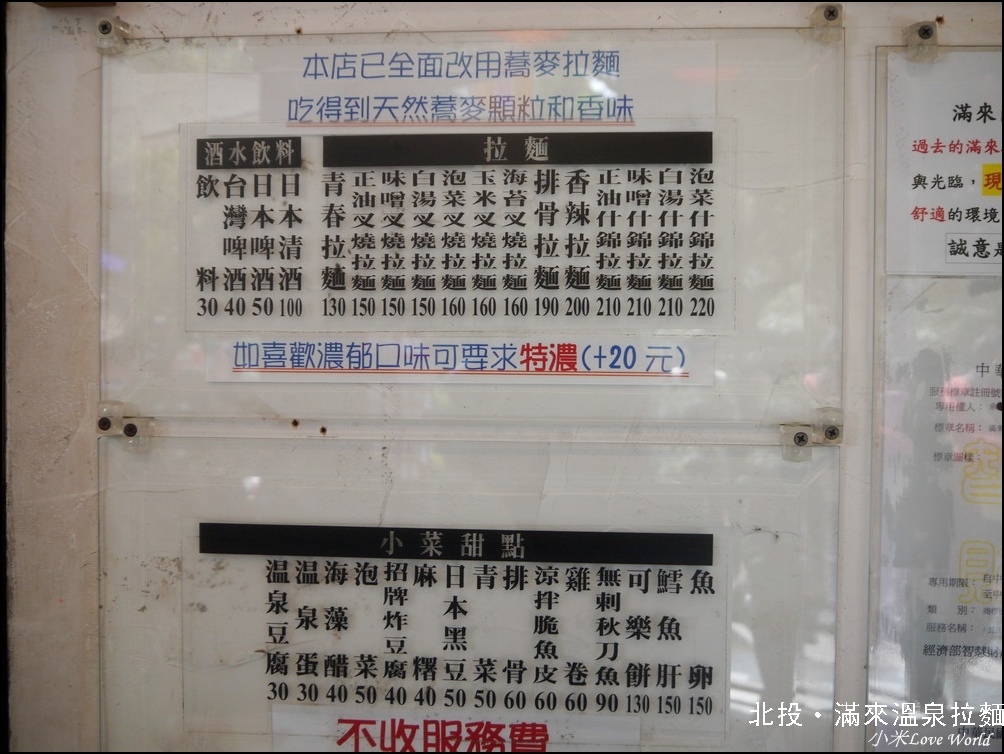 本店已全面改用蕎麥拉麵
吃得到天然蕎麥顆粒和香味
酒水飲料
飲料 30
台灣啤酒 40
日本啤酒 50
日本清酒 100
拉麵
青春拉麵 130
正油叉燒拉麵 150
味噌叉燒拉麵 150
白湯叉燒拉麵 150
泡菜叉燒拉麵 160
玉米叉燒拉麵 160
海苔叉燒拉麵 160
排骨拉麵 190
香辣拉麵 200
正油什錦拉麵 210
味噌什錦拉麵 210
白湯什錦拉麵 210
泡菜什錦拉麵 220
如喜歡濃郁口味可要求特濃(+20元)
小菜甜點
温泉豆腐 30
温泉蛋 30
海藻醋 40
泡菜 50
招牌炸豆腐 40
麻糬 40
日本黑豆 50
青菜 50
排骨 60
涼拌脆魚皮 60
雞卷 60
無刺秋刀魚 90
可樂餅 130
鱈魚肝 150
魚卵 150
不收服務費
滿來
過去的滿來
與光臨，現
舒適的環境
誠意是
中華
服務標章註冊號
專用權人：
標章名稱：
標章圖樣：
專用期限：自中
至中
類別：
服務名稱：
經濟部智慧財
北投・滿來溫泉拉麵
小米Love World